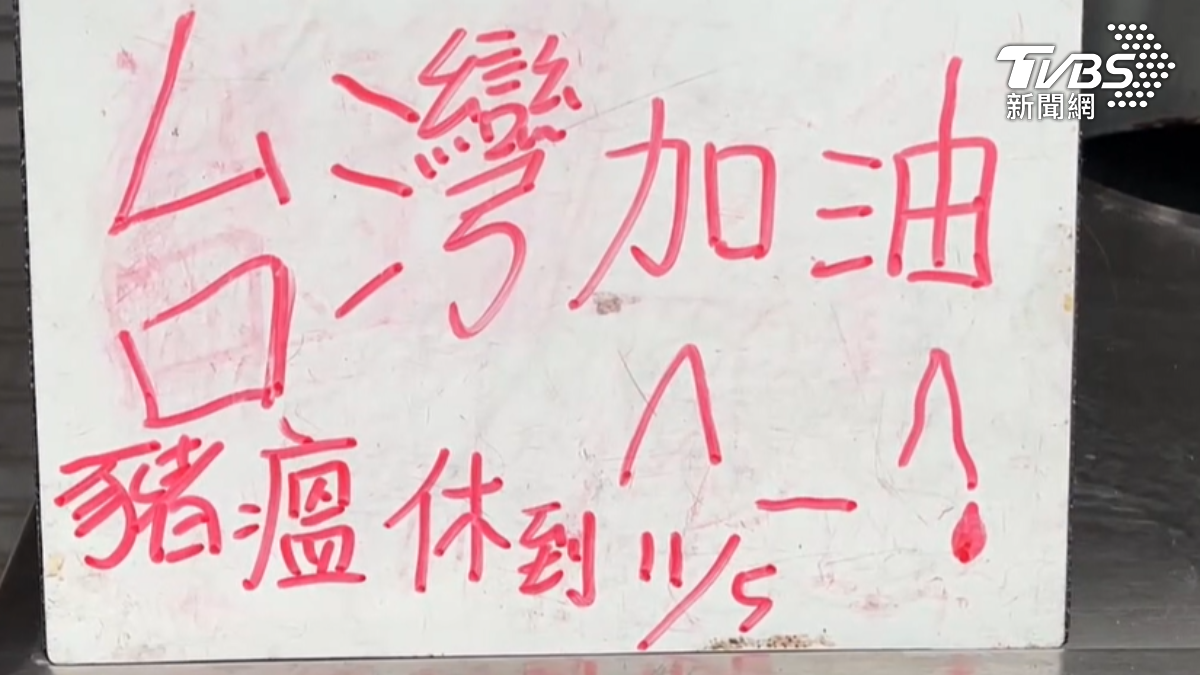 TVBS
新聞網
台灣加油
^_^
豬瘟休到11/5